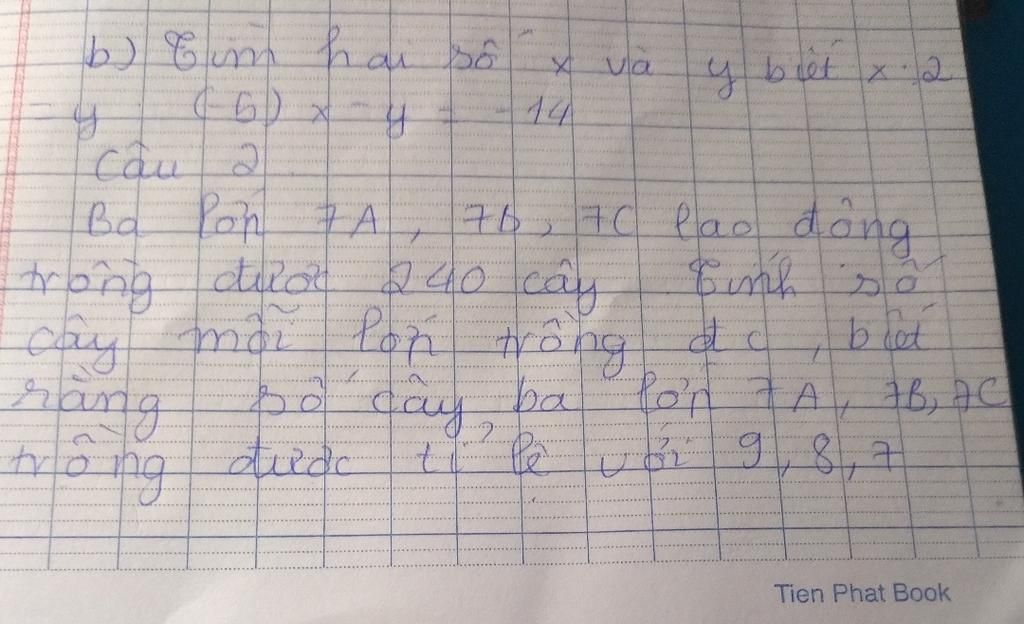 b) Tìm hai số x và y biết x : 2
= y : (-5) x - y = -14
Câu 2
Ba lớp 7A, 7b, 7C lao động
trồng được 240 cây Tính số
cây mỗi lớp trồng đc, biết
rằng số cây ba lớp 7A, 7B, 7C
trồng được tỉ lệ với 9, 8, 7
Tien Phat Book